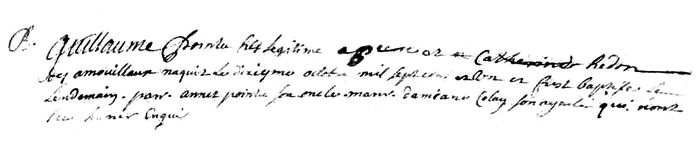 P. Guillaume pointu fils legitime a pierre et a Catherine Redon
des amouillaux naquit le dixieme octobre mil sept cens et fust baptise le
lendemain par annet pointu son oncle mans damiane Colay son ayeule qui n'ont
sceu signer Enquis